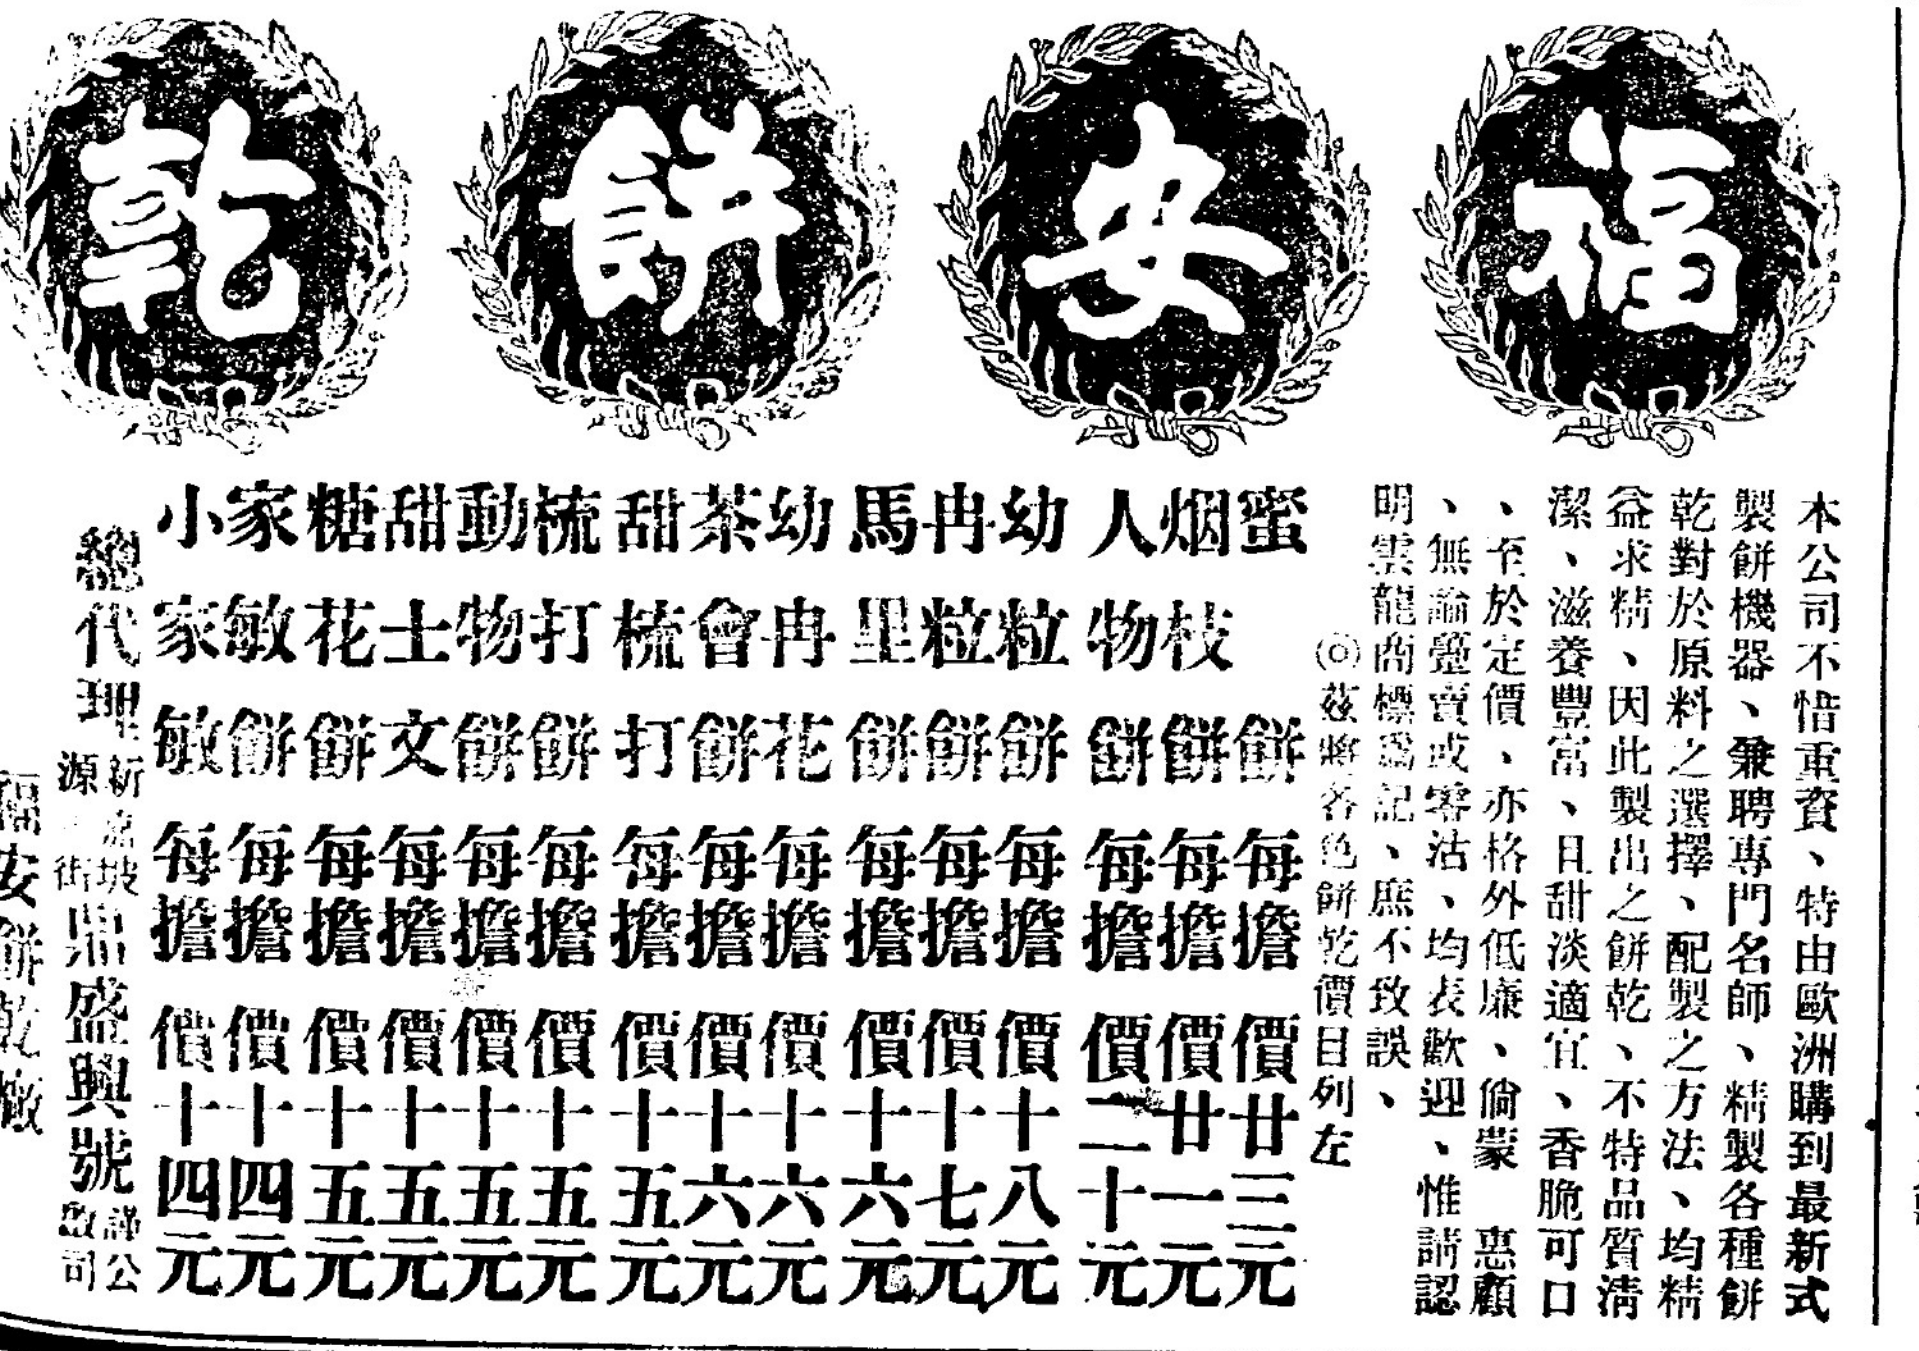 福安餅乾
本公司不惜重資、特由歐洲購到最新式
製餅機器、兼聘專門名師、精製各種餅
乾對於原料之選擇、配製之方法、均精
益求精、因此製出之餅乾、不特品質淸
潔、滋養豐富、且甜淡適宜、香脆可口
、至於定價、亦格外低廉、倘蒙 惠顧
、無論躉賣或零沽、均表歡迎、惟請認
明雲龍商標爲記、庶不致誤、
◎茲將各色餅乾價目列左
蜜餅每擔價廿三元
烟枝餅每擔價廿一元
人物餅每擔價二十元
幼粒餅每擔價十八元
冉粒餅每擔價十七元
馬里餅每擔價十六元
幼冉花每擔價十六元
茶會餅每擔價十六元
甜梳打每擔價十五元
梳打餅每擔價十五元
動物餅每擔價十五元
甜士文每擔價十五元
糖花餅每擔價十五元
家敏餅每擔價十四元
小家敏每擔價十四元
總代理 新嘉坡源 街 盛興號公司謹啟
福安餅乾廠